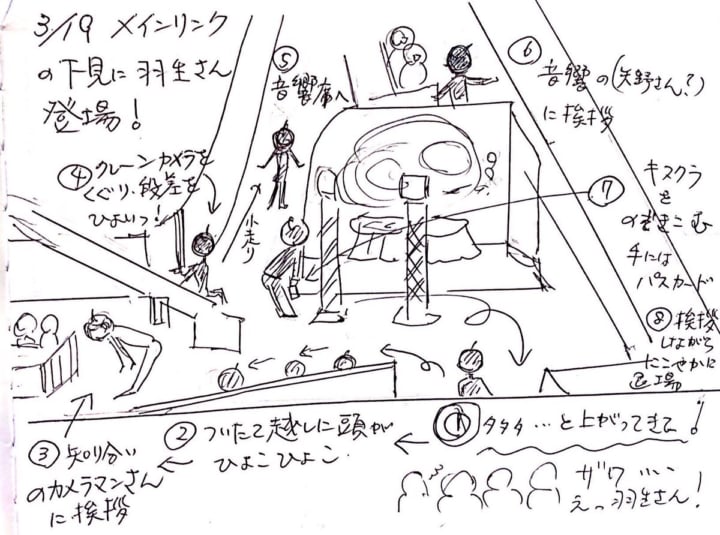 3/19 メインリンク
の下見に羽生さん
登場!
① タタタ…と上がってきて!
ザワ…
えっ羽生さん!
② ついたて越しに頭が
ひょこひょこ
③ 知り合い
のカメラマンさん
に挨拶
④ クレーンカメラを
くぐり、段差を
ひょいっ!
⑤
音響席へ
小走り
⑥
音響の(矢野さん?)
に挨拶
⑦
キスクラ
を
のぞきこむ
手には
パスカード
⑧ 挨拶
しながら
にこやかに
退場